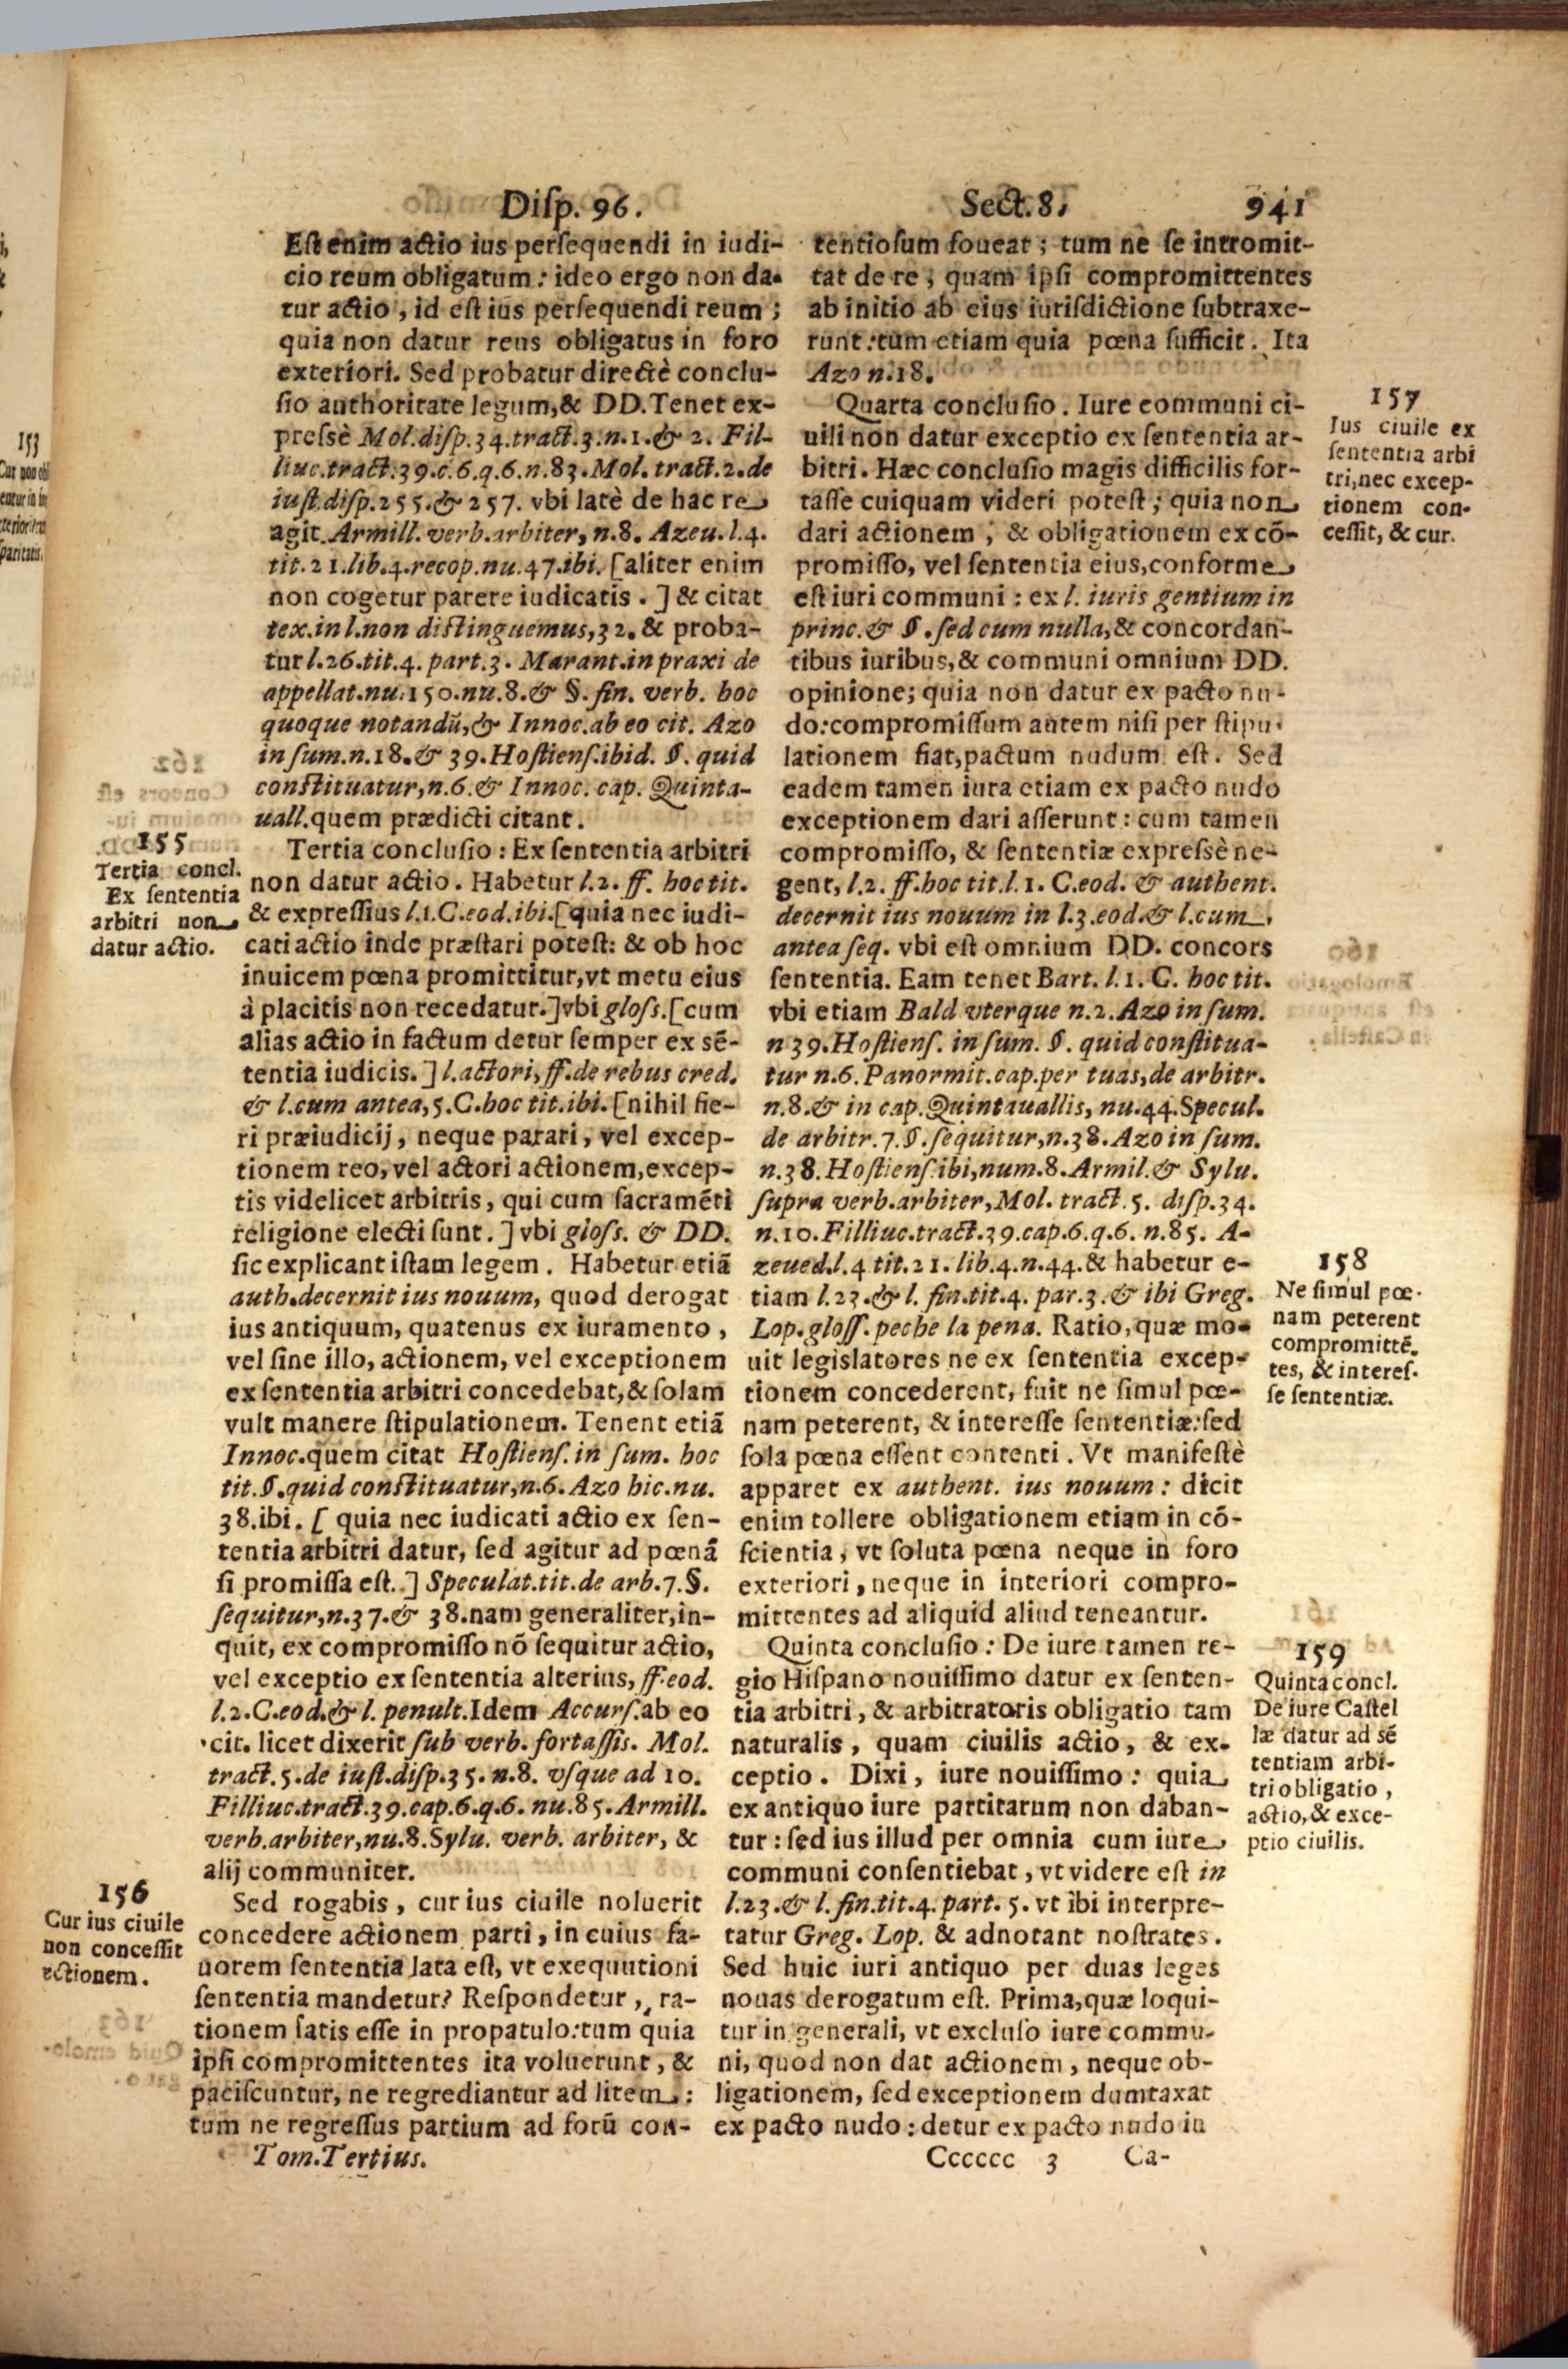 Diſp. 96.
Sect. 8.
941
Eſt enim actio ius perſequendi in iudi-
cio reum obligatum: ideo ergo non da-
tur actio, id eſt ius perſequendi reum;
quia non datur reus obligatus in foro
exteriori. Sed probatur directè conclu-
ſio authoritate legum, & DD. Tenet ex-
preſsè Mol. diſp. 34. tract. 3. n. 1. & 2. Fil-
liuc. tract. 39. c. 6. q. 6. n. 83. Mol. tract. 2. de
iuſt. diſp. 255. & 257. vbi latè de hac re
agit. Armill. verb. arbiter, n. 8. Azeu. l. 4.
tit. 21. lib. 4. recop. nu. 47. ibi. [aliter enim
non cogetur parere iudicatis.] & citat
tex. in l. non diſtinguemus, 32. & proba-
tur l. 26. tit. 4. part. 3. Marant. in praxi de
appellat. nu. 150. nu. 8. & §. fin. verb. hoc
quoque notandũ, & Innoc. ab eo cit. Azo
in ſum. n. 18. & 39. Hoſtienſ. ibid. §. quid
conſtituatur, n. 6. & Innoc. cap. Quinta-
uall. quem prædicti citant.
155
Tertia concl.
Ex ſententia
arbitri non
datur actio.
Tertia concluſio: Ex ſententia arbitri
non datur actio. Habetur l. 2. ff. hoc tit.
& expreſſius l. 1. C. eod. ibi. [quia nec iudi-
cati actio inde præſtari poteſt: & ob hoc
inuicem pœna promittitur, vt metu eius
à placitis non recedatur.] vbi gloſs. [cum
alias actio in factum detur ſemper ex sẽ-
tentia iudicis.] l. actori, ff. de rebus cred.
& l. cum antea, 5. C. hoc tit. ibi. [nihil fie-
ri præiudicij, neque parari, vel excep-
tionem reo, vel actori actionem, excep-
tis videlicet arbitris, qui cum ſacramẽti
religione electi ſunt.] vbi gloſs. & DD.
ſic explicant iſtam legem. Habetur etiã
auth. decernit ius nouum, quod derogat
ius antiquum, quatenus ex iuramento,
vel ſine illo, actionem, vel exceptionem
ex ſententia arbitri concedebat, & ſolam
vult manere ſtipulationem. Tenent etiã
Innoc. quem citat Hoſtienſ. in ſum. hoc
tit. §. quid conſtituatur, n. 6. Azo hic. nu.
38. ibi. [quia nec iudicati actio ex ſen-
tentia arbitri datur, ſed agitur ad pœnã
ſi promiſſa eſt.] Speculat. tit. de arb. 7. §.
ſequitur, n. 37. & 38. nam generaliter, in-
quit, ex compromiſſo nõ ſequitur actio,
vel exceptio ex ſententia alterius, ff. eod.
l. 2. C. eod. & l. penult. Idem Accurſ. ab eo
cit. licet dixerit ſub verb. fortaſſis. Mol.
tract. 5. de iuſt. diſp. 35. n. 8. vſque ad 10.
Filliuc. tract. 39. cap. 6. q. 6. nu. 85. Armill.
verb. arbiter, nu. 8. Sylu. verb. arbiter, &
alij communiter.
156
Cur ius ciuile
non conceſſit
actionem.
Sed rogabis, cur ius ciuile noluerit
concedere actionem parti, in cuius fa-
uorem ſententia lata eſt, vt exequutioni
ſententia mandetur? Reſpondetur, ra-
tionem ſatis eſſe in propatulo: tum quia
ipſi compromittentes ita voluerunt, &
paciſcuntur, ne regrediantur ad litem:
tum ne regreſſus partium ad forũ con-
Tom. Tertius.
tentioſum foueat; tum ne ſe intromit-
tat de re, quam ipſi compromittentes
ab initio ab eius iuriſdictione ſubtraxe-
runt: tum etiam quia pœna ſufficit. Ita
Azo n. 18.
157
Ius ciuile ex
ſententia arbi
tri, nec excep-
tionem con-
ceſſit, & cur.
Quarta concluſio. Iure communi ci-
uili non datur exceptio ex ſententia ar-
bitri. Hæc concluſio magis difficilis for-
taſſe cuiquam videri poteſt; quia non
dari actionem, & obligationem ex cõ-
promiſſo, vel ſententia eius, conforme
eſt iuri communi: ex l. iuris gentium in
princ. & §. ſed cum nulla, & concordan-
tibus iuribus, & communi omnium DD.
opinione; quia non datur ex pacto nu-
do: compromiſſum autem niſi per ſtipu-
lationem fiat, pactum nudum eſt. Sed
eadem tamen iura etiam ex pacto nudo
exceptionem dari aſſerunt: cum tamen
compromiſſo, & ſententiæ expreſsè ne-
gent, l. 2. ff. hoc tit. l. 1. C. eod. & authent.
decernit ius nouum in l. 3. eod. & l. cum
antea ſeq. vbi eſt omnium DD. concors
ſententia. Eam tenet Bart. l. 1. C. hoc tit.
vbi etiam Bald vterque n. 2. Azo in ſum.
n 39. Hoſtienſ. in ſum. §. quid conſtitua-
tur n. 6. Panormit. cap. per tuas, de arbitr.
n. 8. & in cap. Quintauallis, nu. 44. Specul.
de arbitr. 7. §. ſequitur, n. 38. Azo in ſum.
n. 38. Hoſtienſ. ibi, num. 8. Armil. & Sylu.
ſupra verb. arbiter, Mol. tract. 5. diſp. 34.
n. 10. Filliuc. tract. 39. cap. 6. q. 6. n. 85. A-
zeued. l. 4 tit. 21. lib. 4. n. 44. & habetur e-
tiam l. 23. & l. fin. tit. 4. par. 3. & ibi Greg.
Lop. gloſſ. peche la pena. Ratio, quæ mo-
uit legislatores ne ex ſententia excep-
tionem concederent, fuit ne ſimul pœ-
nam peterent, & intereſſe ſententiæ: ſed
ſola pœna eſſent contenti. Vt manifeſtè
apparet ex authent. ius nouum: dicit
enim tollere obligationem etiam in cõ-
ſcientia, vt ſoluta pœna neque in foro
exteriori, neque in interiori compro-
mittentes ad aliquid aliud teneantur.
158
Ne ſimul pœ-
nam peterent
compromittẽ-
tes, & intereſ-
ſe ſententiæ.
159
Quinta concl.
De iure Caſtel
læ datur ad sẽ
tentiam arbi-
tri obligatio,
actio, & exce-
ptio ciuilis.
Quinta concluſio: De iure tamen re-
gio Hiſpano nouiſſimo datur ex ſenten-
tia arbitri, & arbitratoris obligatio tam
naturalis, quam ciuilis actio, & ex-
ceptio. Dixi, iure nouiſſimo: quia
ex antiquo iure partitarum non daban-
tur: ſed ius illud per omnia cum iure
communi conſentiebat, vt videre eſt in
l. 23. & l. fin. tit. 4. part. 5. vt ibi interpre-
tatur Greg. Lop. & adnotant noſtrates.
Sed huic iuri antiquo per duas leges
nouas derogatum eſt. Prima, quæ loqui-
tur in generali, vt excluſo iure commu-
ni, quod non dat actionem, neque ob-
ligationem, ſed exceptionem dumtaxat
ex pacto nudo: detur ex pacto nudo in
Cccccc 3
Ca-